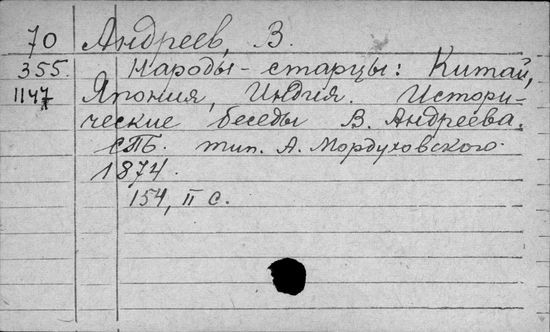 70 Андреев, В.
355. Народы-старцы: Китай,
1147 Япония, Индия. Истори-
ческие беседы В. Андреева.
СПБ. тип. А. Мордуховского.
1874.
154, II с.